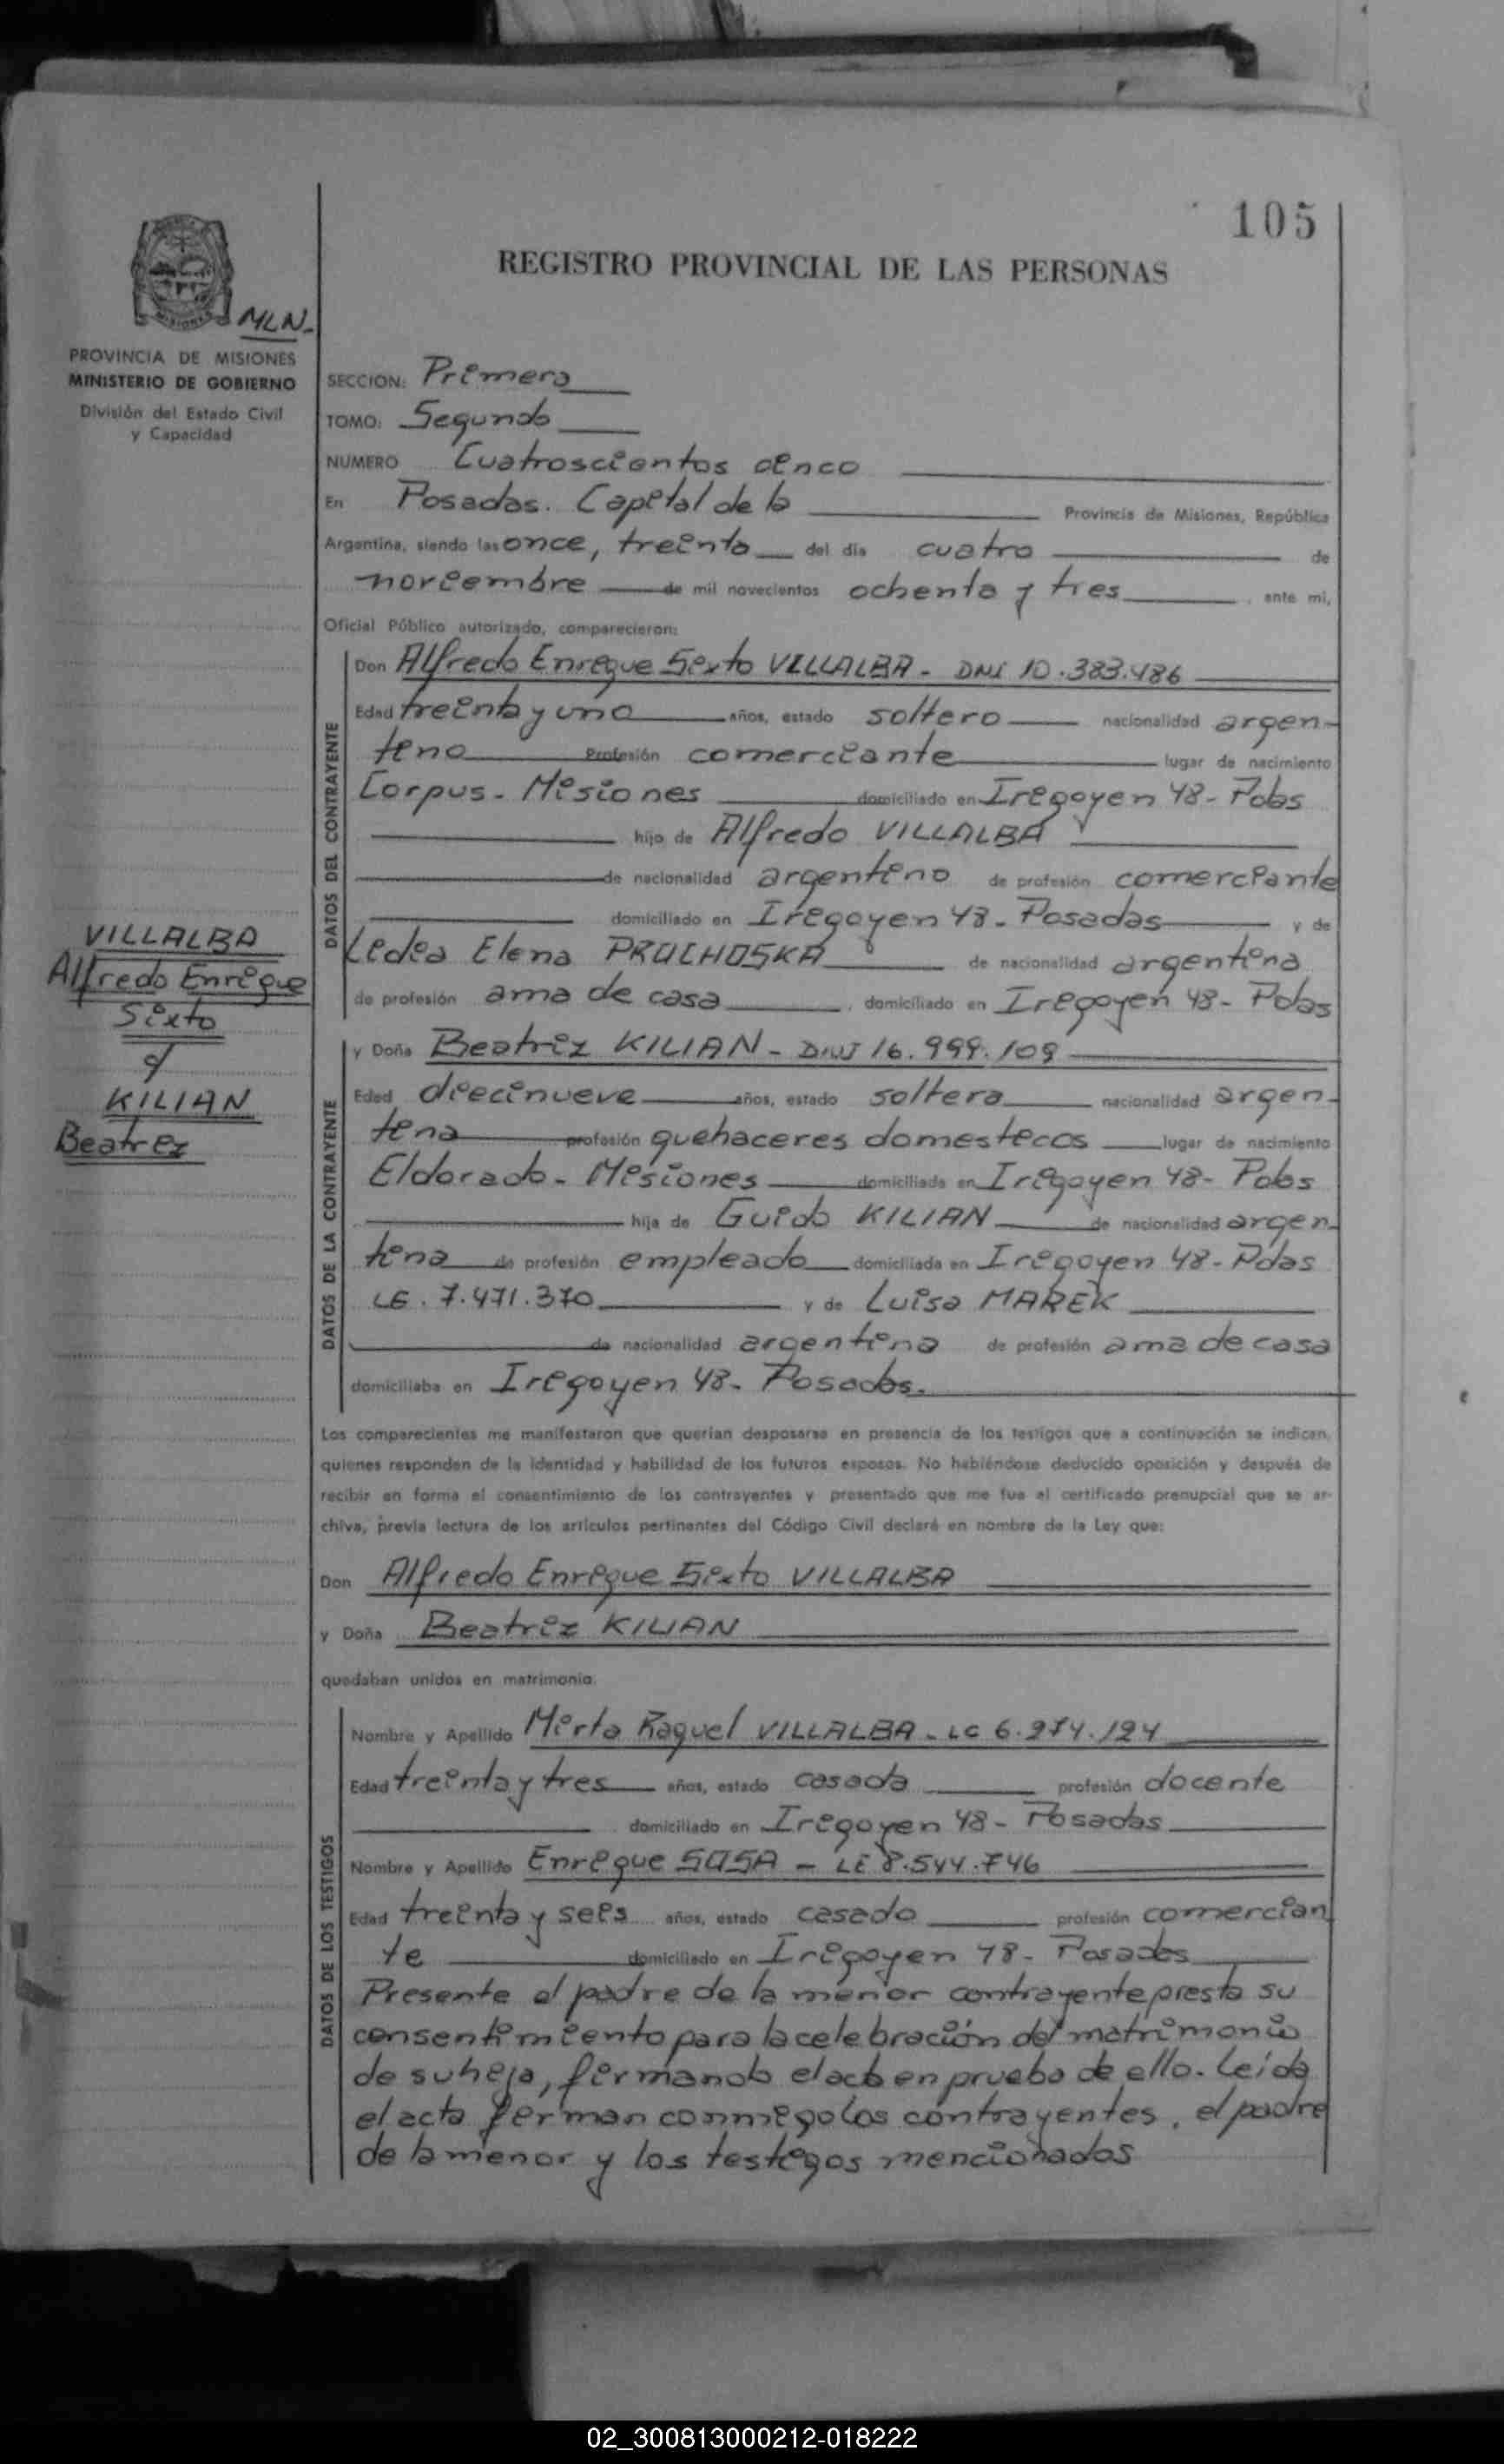 105
REGISTRO PROVINCIAL DE LAS PERSONAS
MISIONES
MLN-
PROVINCIA DE MISIONES
MINISTERIO DE GOBIERNO
División del Estado Civil
y Capacidad
SECCION: Primera
TOMO: Segundo
NUMERO Cuatroscientos cinco
En Posadas. Capital de la Provincia de Misiones, República
Argentina, siendo las once, treinta del día cuatro de
noviembre de mil novecientos ochenta y tres, ante mi,
Oficial Público autorizado, comparecieron:
DATOS DEL CONTRAYENTE
Don Alfredo Enrique Sixto VILLALBA - DNI 10.383.486
Edad treinta y uno años, estado soltero nacionalidad argen-
tino Profesión comerciante lugar de nacimiento
Corpus - Misiones domiciliado en Irigoyen 48 - Pdas
hijo de Alfredo VILLALBA
de nacionalidad argentino de profesión comerciante
domiciliado en Irigoyen 48 - Posadas y de
Lidia Elena PRUCHOSKA de nacionalidad argentina
de profesión ama de casa, domiciliado en Irigoyen 48 - Pdas
VILLALBA
Alfredo Enrique
Sixto
c/
KILIAN
Beatriz
DATOS DE LA CONTRAYENTE
y Doña Beatriz KILIAN - DNI 16.999.109
Edad diecinueve años, estado soltera nacionalidad argen-
tina profesión quehaceres domesticos lugar de nacimiento
Eldorado - Misiones domiciliada en Irigoyen 48 - Pdas
hija de Guido KILIAN de nacionalidad argen-
tina de profesión empleado domiciliada en Irigoyen 48 - Pdas
LE. 7.471.370 y de Luisa MAREK
de nacionalidad argentina de profesión ama de casa
domiciliaba en Irigoyen 48 - Posadas.
Los comparecientes me manifestaron que querían desposarse en presencia de los testigos que a continuación se indican,
quienes responden de la identidad y habilidad de los futuros esposos. No habiéndose deducido oposición y después de
recibir en forma el consentimiento de los contrayentes y presentado que me fue el certificado prenupcial que se ar-
chiva, previa lectura de los artículos pertinentes del Código Civil declaré en nombre de la Ley que:
Don Alfredo Enrique Sixto VILLALBA
y Doña Beatriz KILIAN
quedaban unidos en matrimonio.
DATOS DE LOS TESTIGOS
Nombre y Apellido Mirta Raquel VILLALBA - LC 6.274.124
Edad treinta y tres años, estado casada profesión docente
domiciliado en Irigoyen 48 - Posadas
Nombre y Apellido Enrique SOSA - LE 8.544.746
Edad treinta y seis años, estado casado profesión comercian
te domiciliado en Irigoyen 48 - Posadas
Presente el padre de la menor contrayente presta su
consentimiento para la celebración del matrimonio
de su hija, firmando el acto en prueba de ello. Leida
el acta firman conmigo los contrayentes, el padre
de la menor y los testigos mencionados
02_300813000212-018222